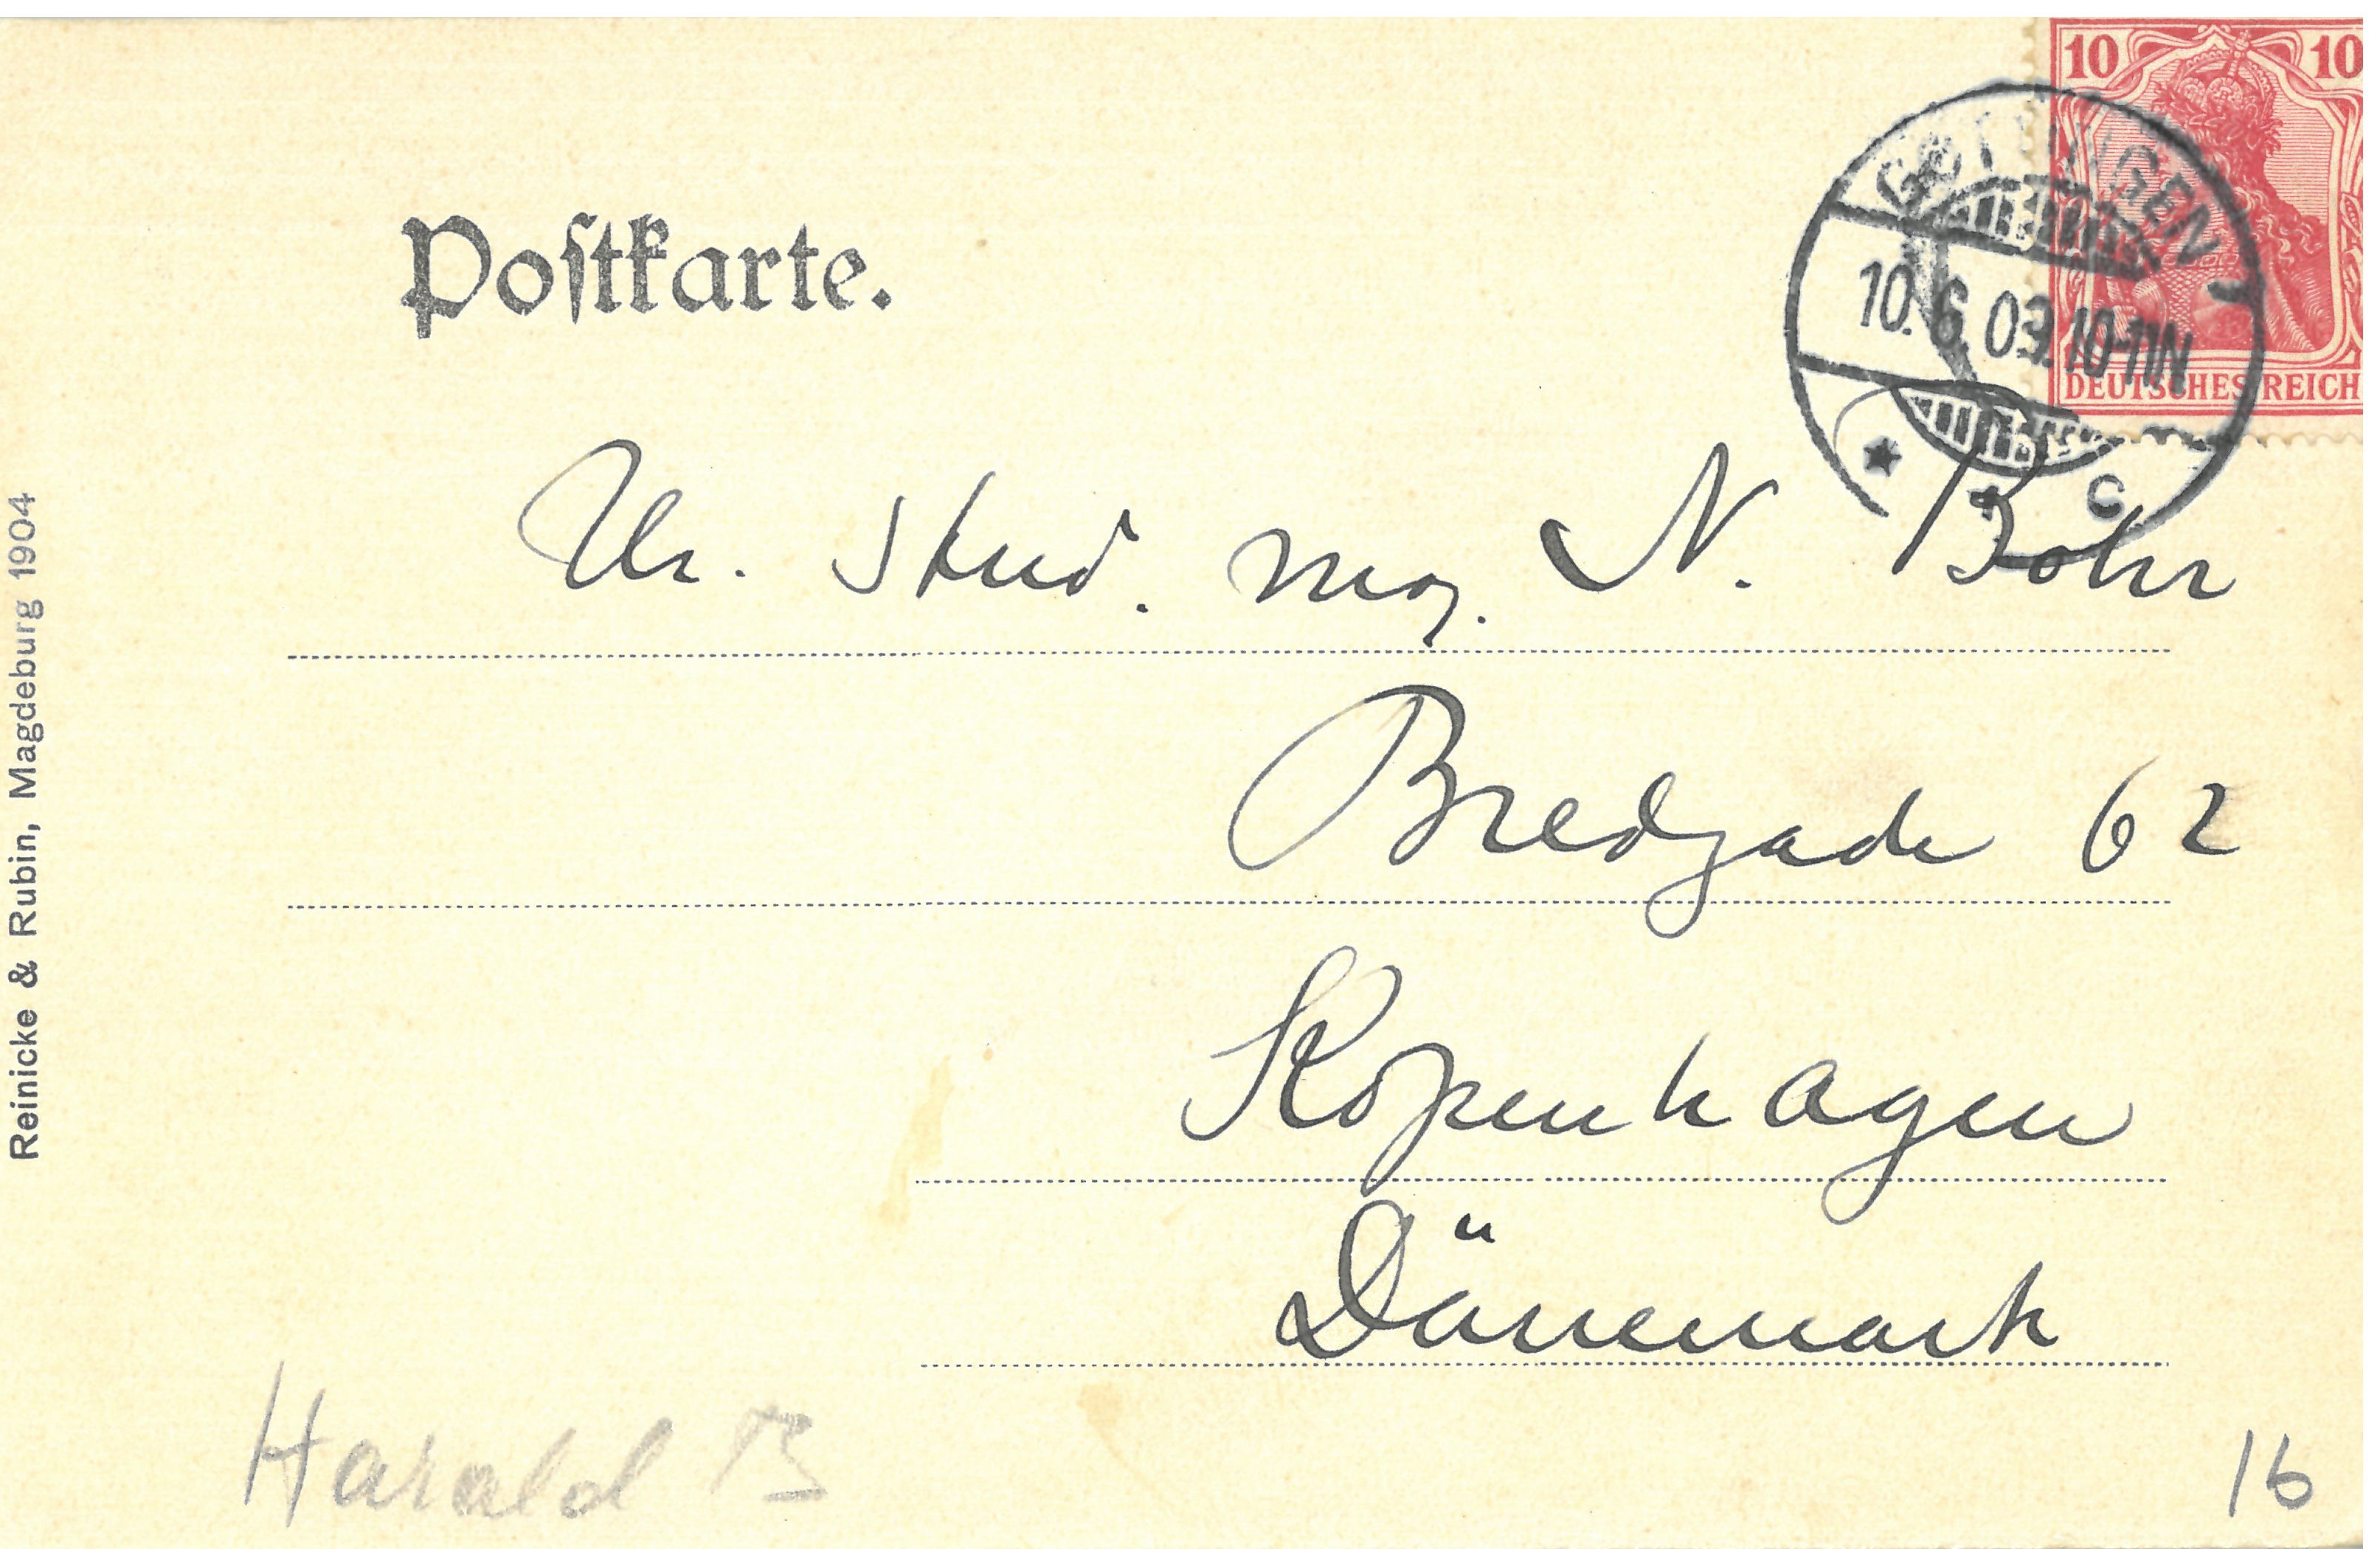 10 10
DEUTSCHES REICH
GÖTTINGEN 1
10.6.09.10-11N
* * C
Postkarte.
Hr. stud. mag. N. Bohr
Bredgade 62
Kopenhagen
Dänemark
Reinicke & Rubin, Magdeburg 1904
Harald B
16